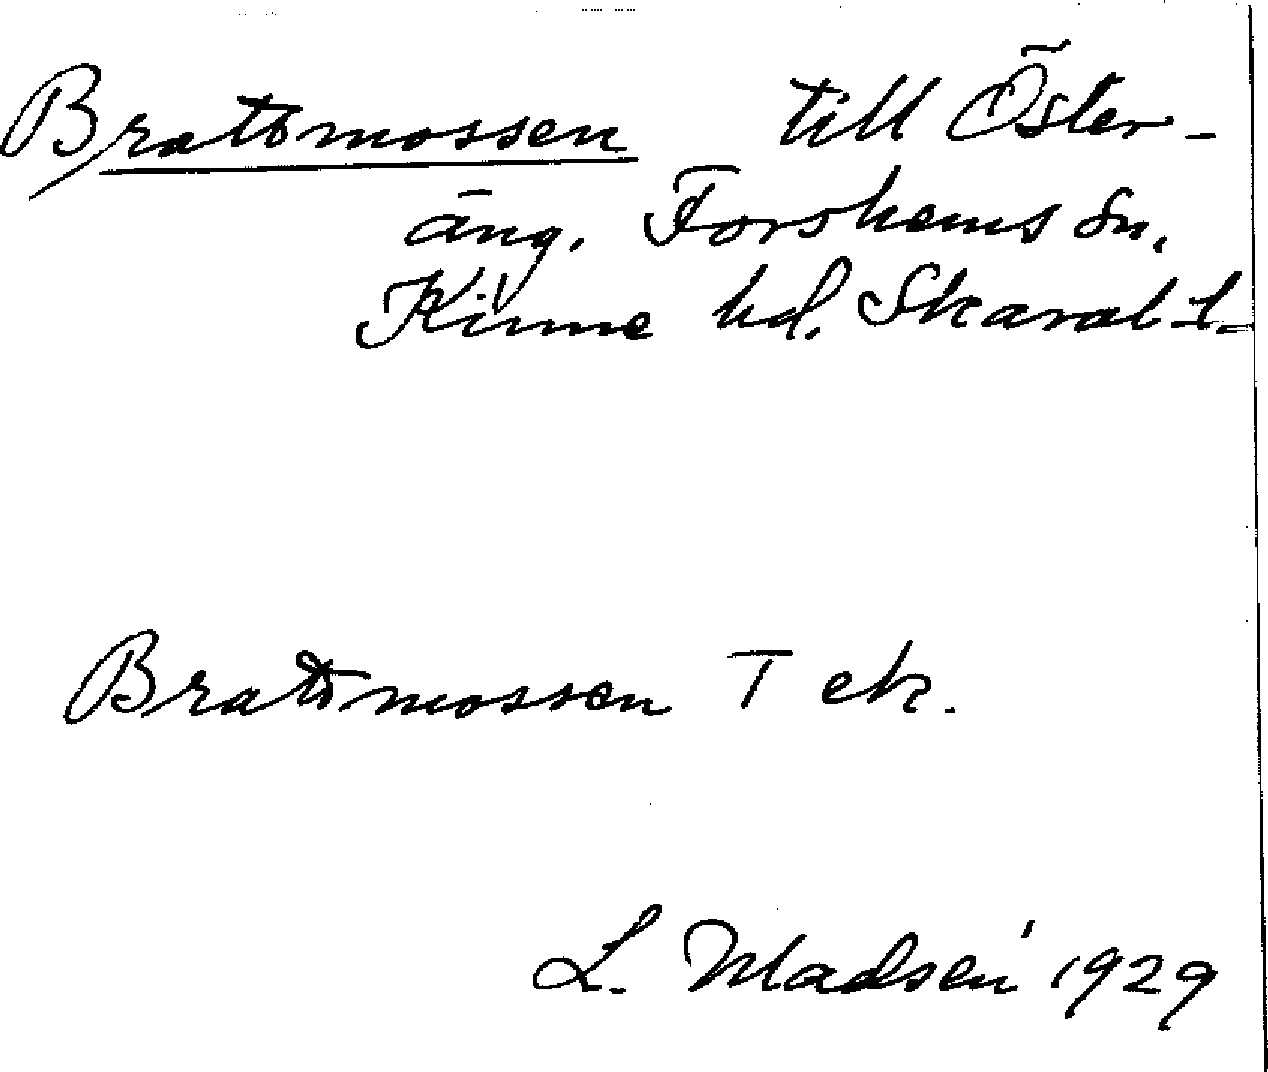 Brattsmossen till Öster-
äng. Forshems sn.
Kinne hd. Skarab. l.
Brattsmossen T ek.
L. Madsén 1929